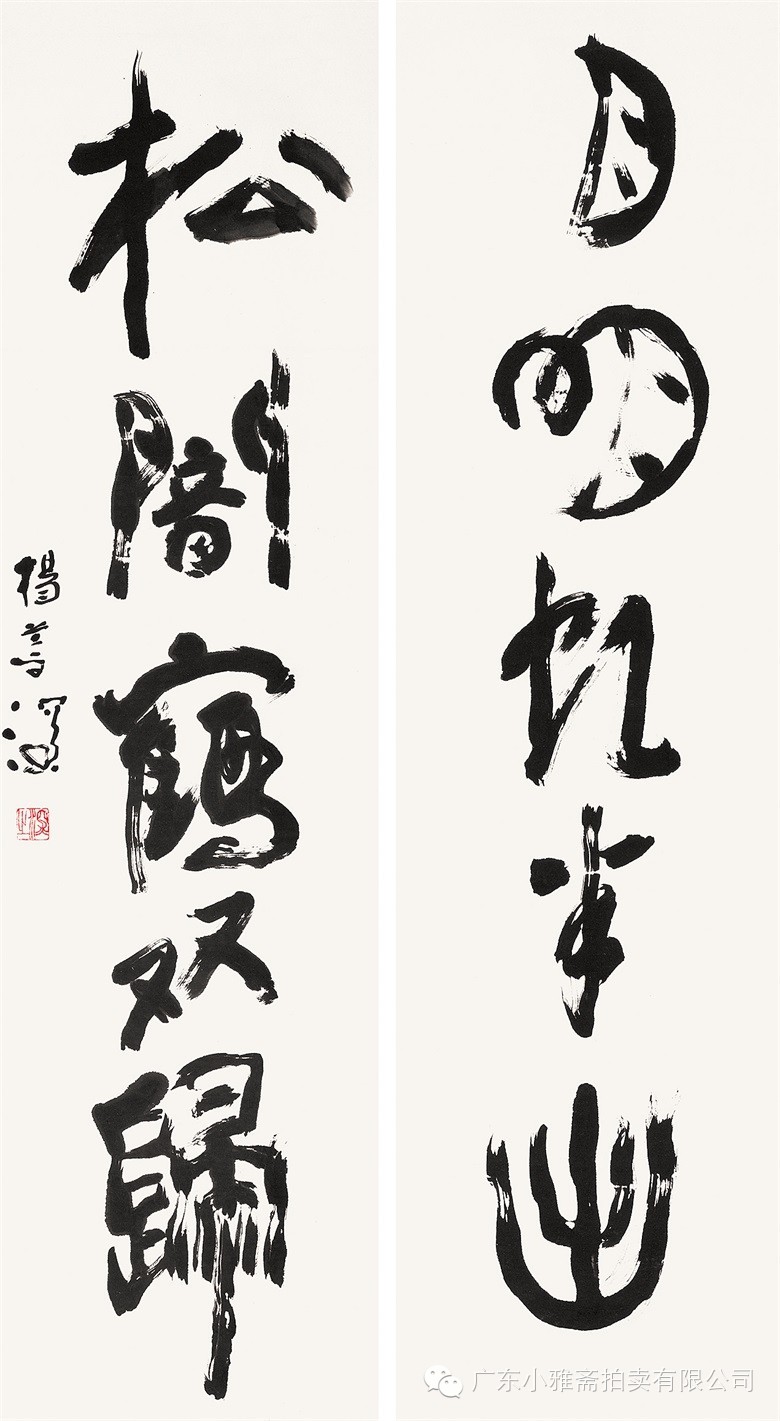 月明虬半出
松闇鶴双歸
楊善深
广东小雅斋拍卖有限公司